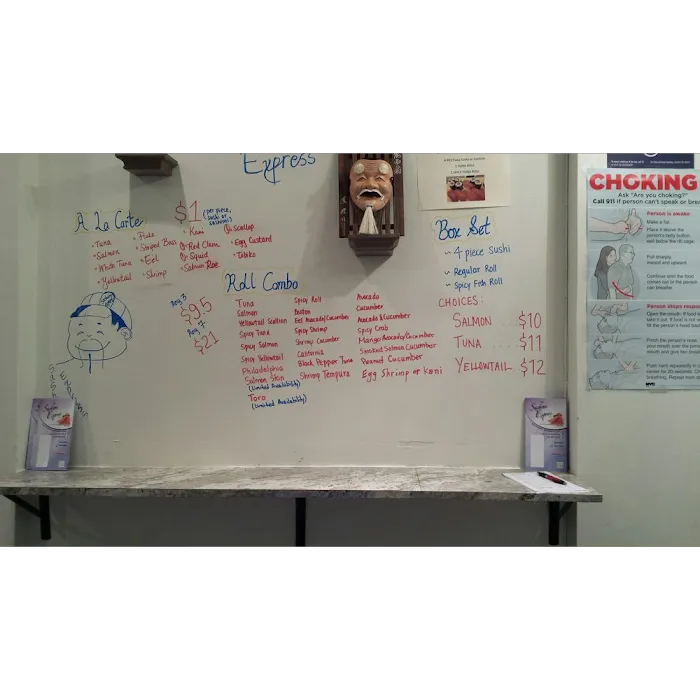 Express
A La Carte
$1 (per piece, sushi or sashimi)
• Tuna
• Salmon
• White Tuna
• Yellowtail
• Fluke
• Striped Bass
• Eel
• Shrimp
• Kani
Red Clam
Squid
• Salmon Roe
Scallop
• Egg Custard
• Tobiko
Roll Combo
Any 3
$9.5
Any 7
$21
Tuna
Salmon
Yellowtail Scallion
Spicy Tuna
Spicy Salmon
Spicy Yellowtail
Philadelphia
Salmon Skin
(Limited Availability)
Toro
(Limited Availability)
Spicy Roll
Boston
Eel Avocado/Cucumber
Spicy Shrimp
Shrimp Cucumber
California
Black Pepper Tuna
Shrimp Tempura
Avocado
Cucumber
Avocado & Cucumber
Spicy Crab
Mango Avocado/Cucumber
Smoked Salmon Cucumber
Peanut Cucumber
Egg Shrimp or Kani
Box Set
~ 4 piece Sushi
~ Regular Roll
~ Spicy Fish Roll
CHOICES:
SALMON ... $10
TUNA ... $11
YELLOWTAIL ... $12
CHOKING
Ask "Are you choking?"
Call 911 if person can't speak or
Person is awake
Make a fist
Place it above the
person's belly button,
well below the rib cage
Pull sharply,
inward and upward
Continue until the
person coughs or
can breathe
NYC